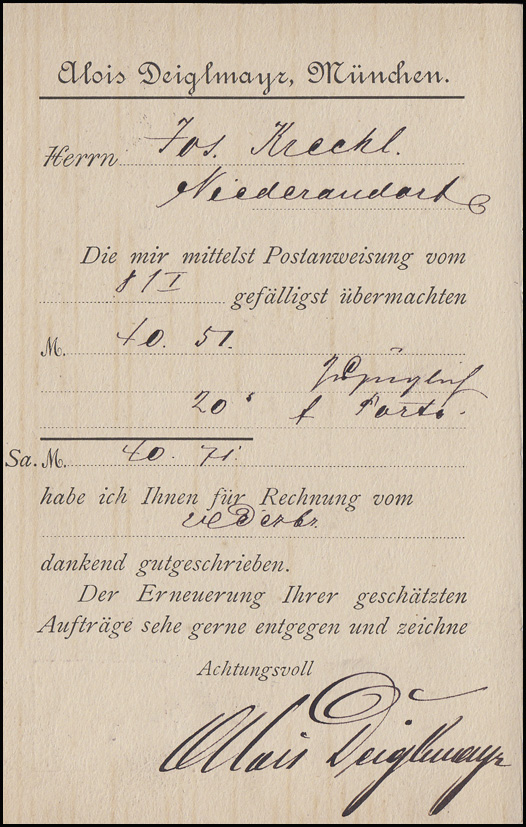 Alois Deiglmayr, München.
Herrn Jos. Krechl.
Niederaudorf
Die mir mittelst Postanweisung vom
8/I gefälligst übermachten
M. 40. 51.
20 f Porto.
Sa. M. 40. 71.
habe ich Ihnen für Rechnung vom
dankend gutgeschrieben.
Der Erneuerung Ihrer geschätzten
Aufträge sehe gerne entgegen und zeichne
Achtungsvoll
Alois Deiglmayr